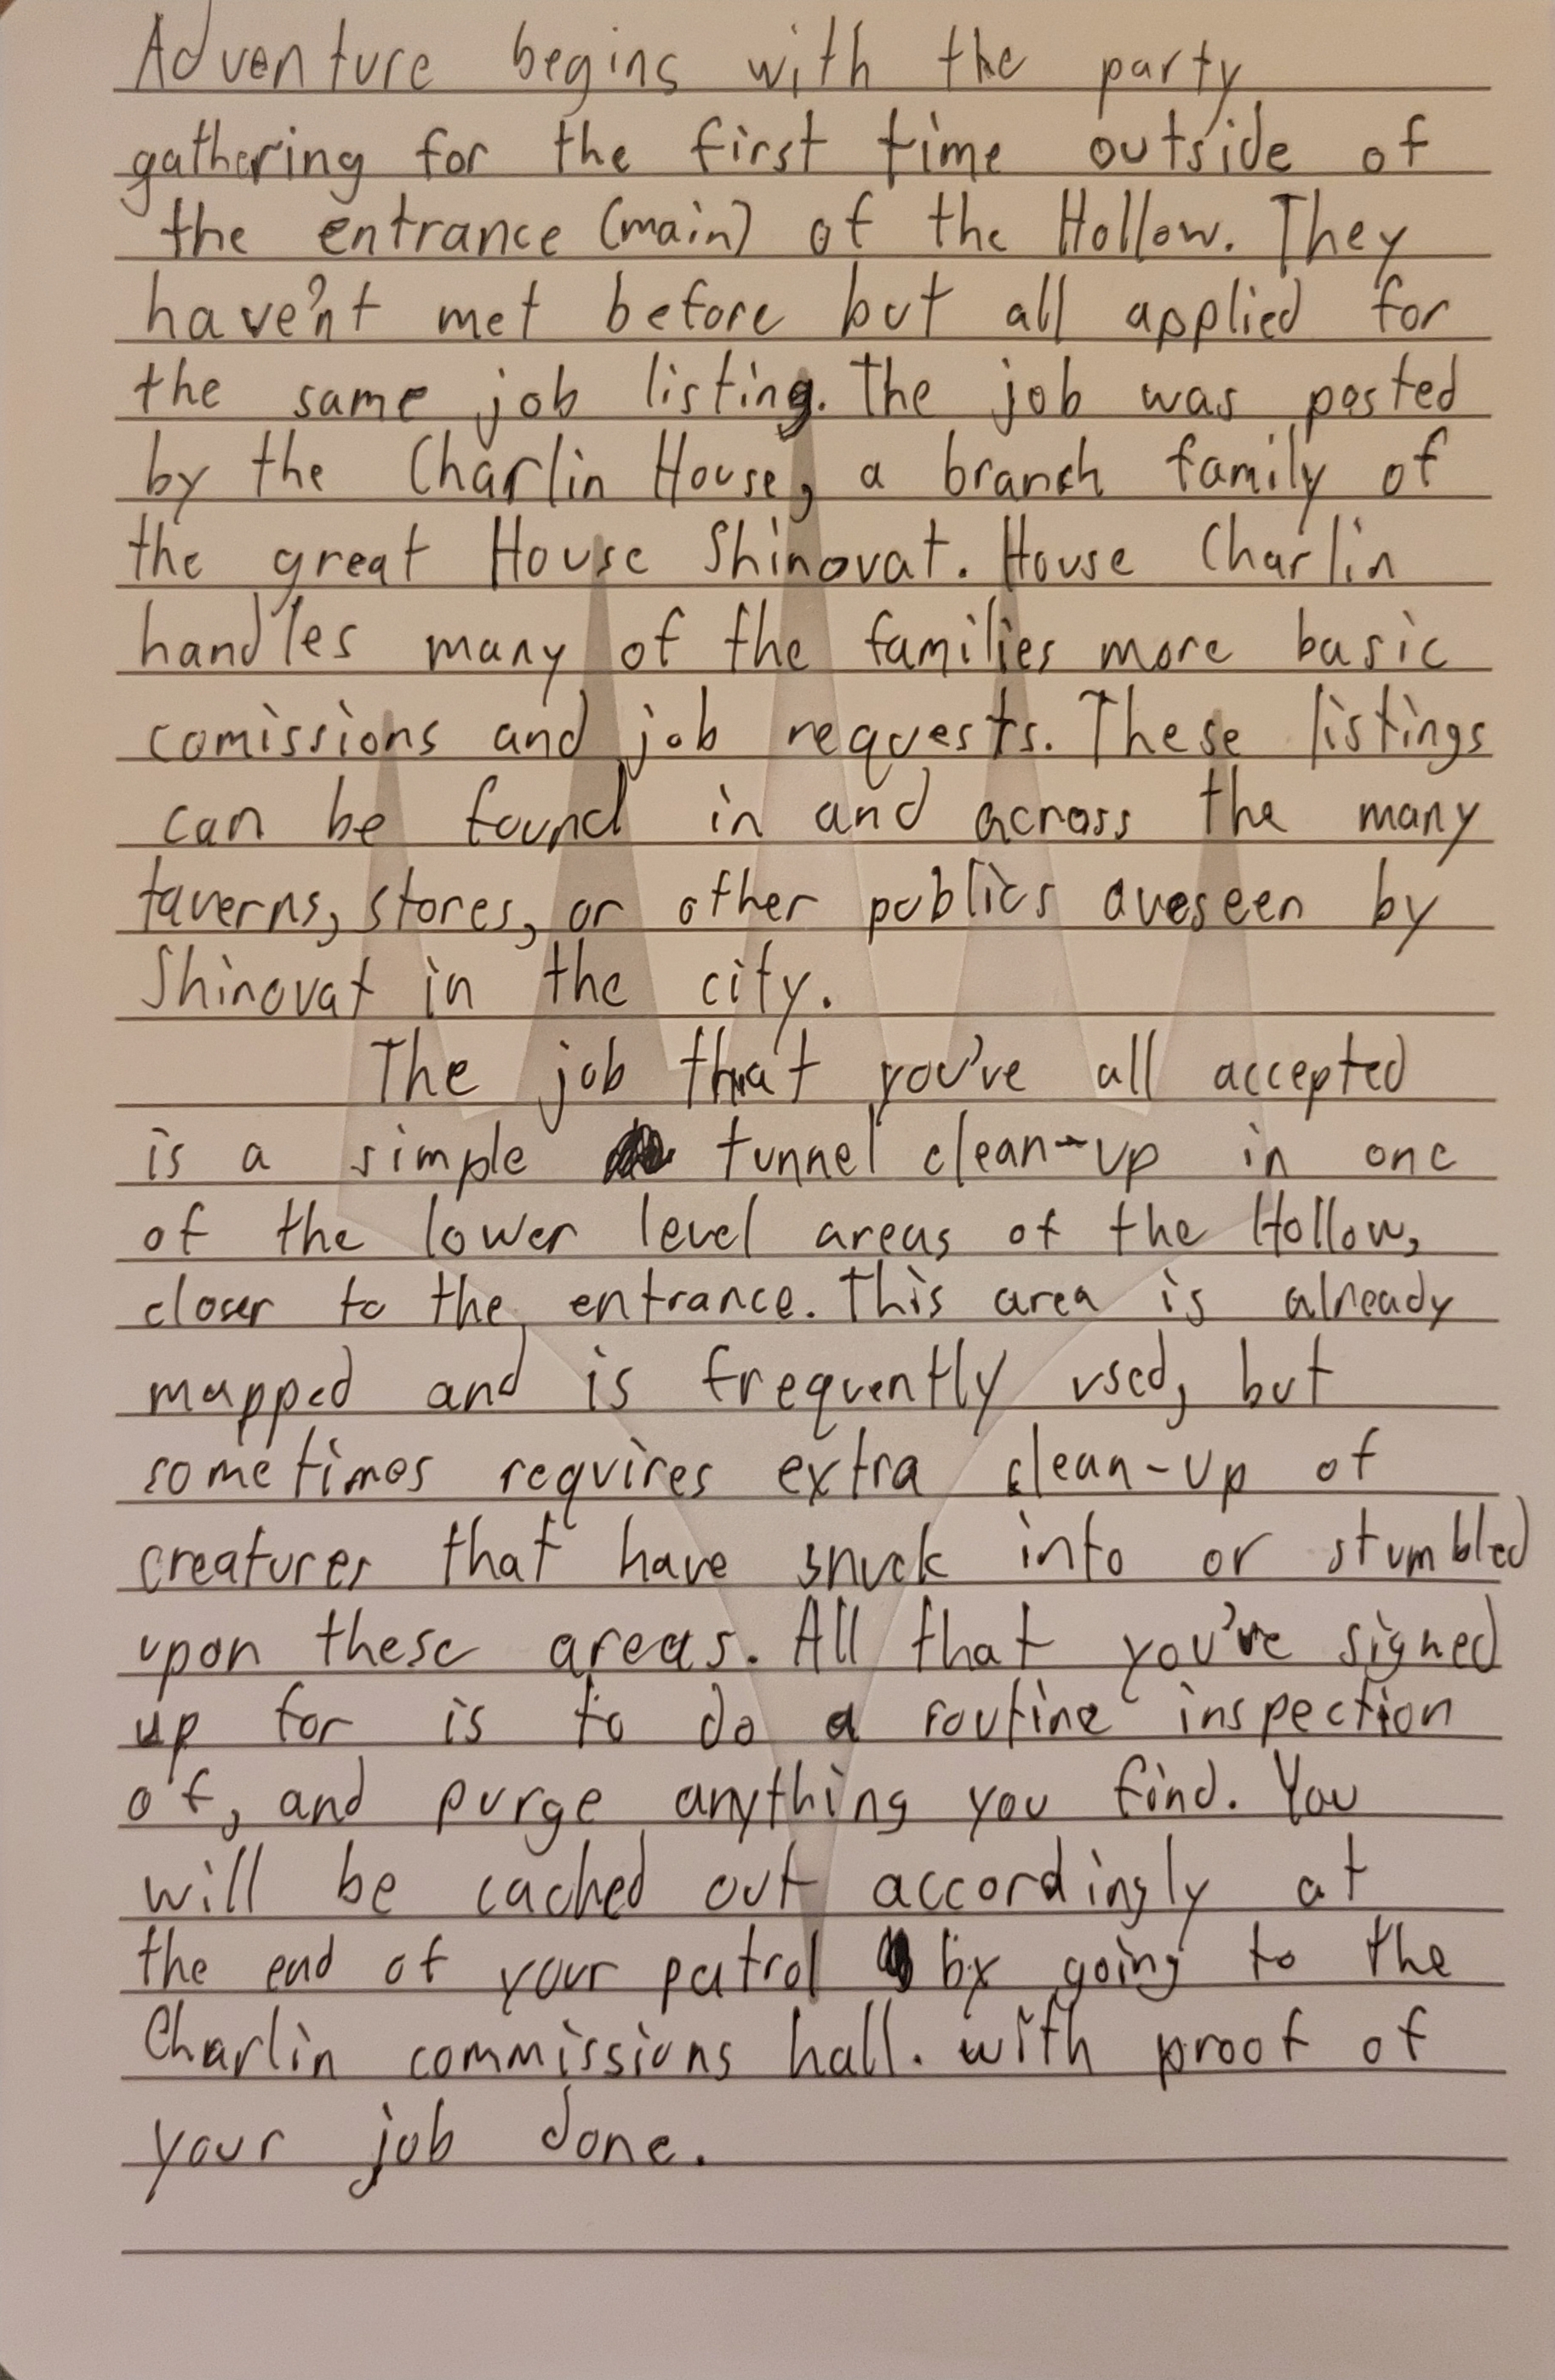 Adventure begins with the party
gathering for the first time outside of
the entrance (main) of the Hollow. They
have'nt met before but all applied for
the same job listing. The job was posted
by the Charlin House, a branch family of
the great House Shinovat. House Charlin
handles many of the families more basic
comissions and job requests. These listings
can be found in and across the many
taverns, stores, or other publics overseen by
Shinovat in the city.
The job that you've all accepted
is a simple tunnel clean-up in one
of the lower level areas of the Hollow,
closer to the entrance. This area is already
mapped and is frequently used, but
sometimes requires extra clean-up of
creatures that have snuck into or stumbled
upon these areas. All that you've signed
up for is to do a routine inspection
of, and purge anything you find. You
will be cached out accordingly at
the end of your patrol by going to the
Charlin commissions hall. with proof of
your job done.